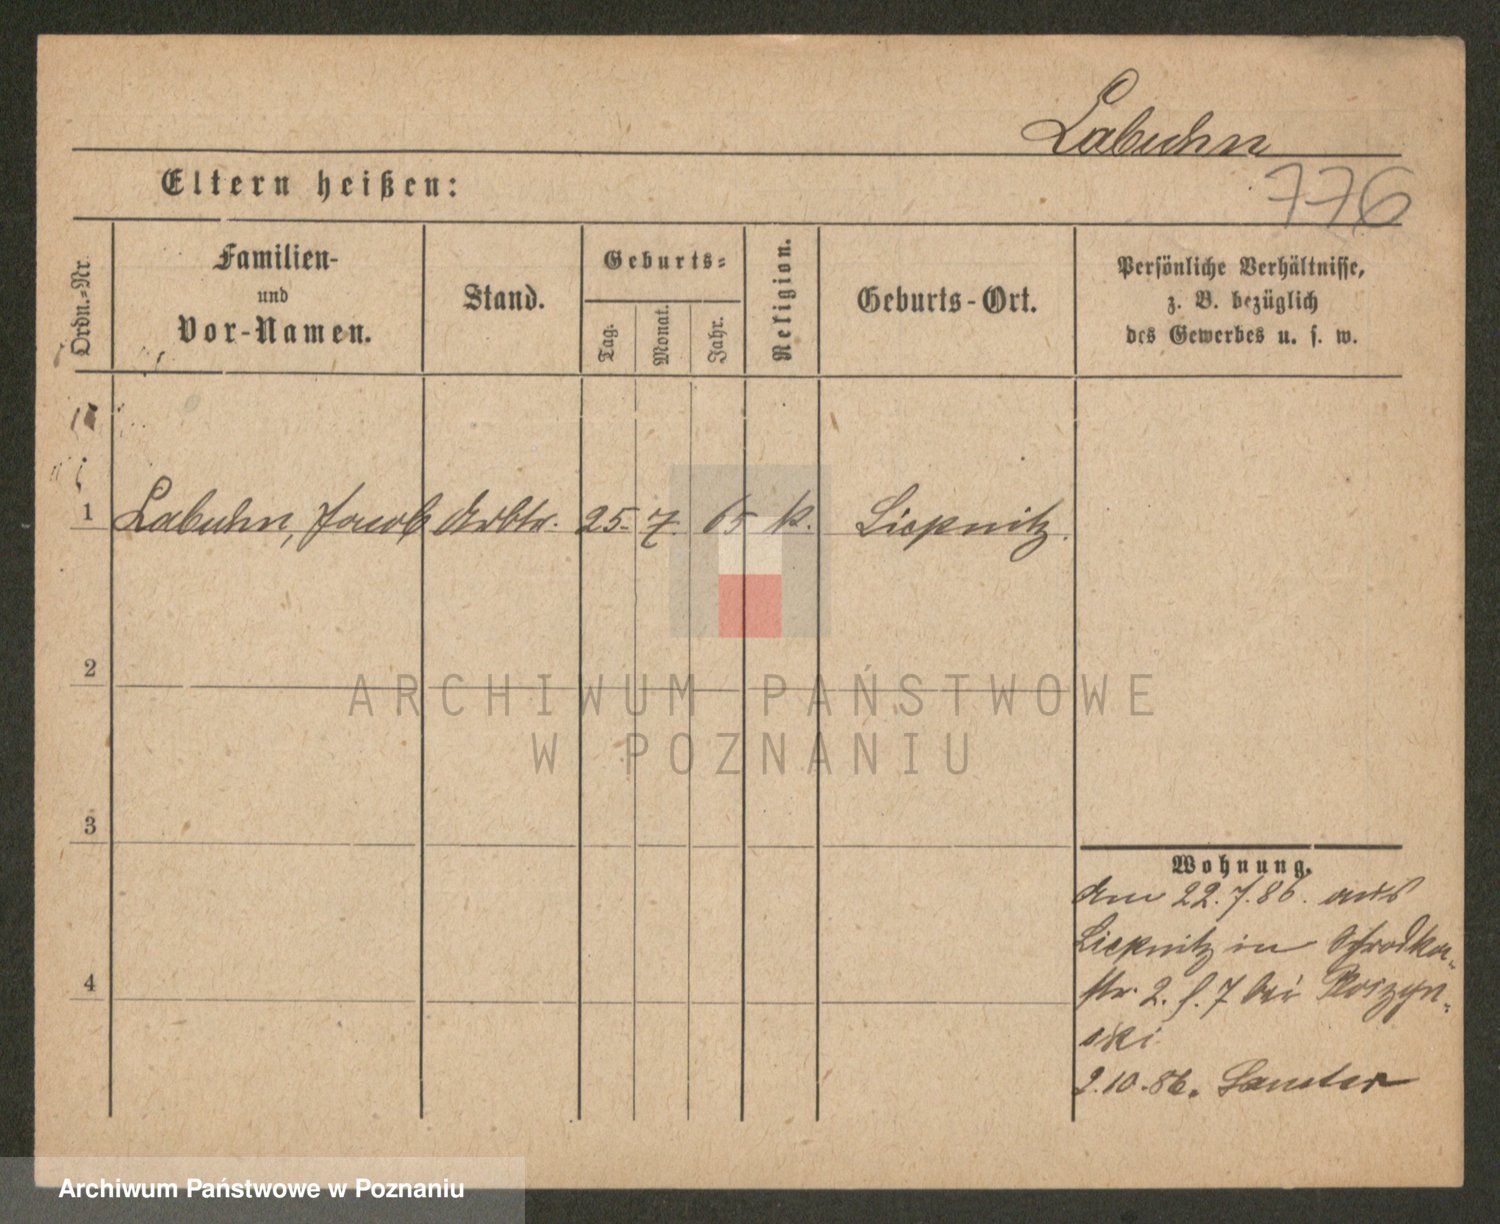 Labuhn
776
Eltern heißen:
Ordn.-Nr.
Familien-
und
Vor-Namen.
Stand.
Geburts-
Tag.
Monat.
Jahr.
Religion.
Geburts-Ort.
Persönliche Verhältnisse,
z. B. bezüglich
des Gewerbes u. s. w.
1 Labuhn, Jacob Arbtr. 25. 7. 65 k. Liepnitz.
2
ARCHIWUM PAŃSTWOWE
W POZNANIU
3
4
Wohnung.
Am 22.7.86. aus
Liepnitz in Schrodka-
str. 2. f. 7 bei
ski
2.10.86. Samter
Archiwum Państwowe w Poznaniu